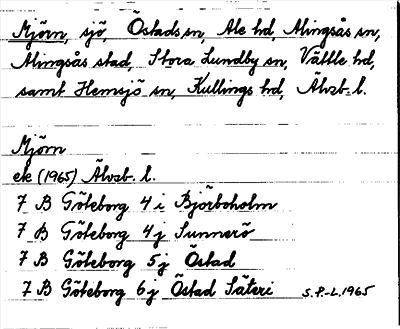 Mjörn, sjö, Östads sn, Ale hd, Alingsås sn,
Alingsås stad, Stora Lundby sn, Vättle hd,
samt Hemsjö sn, Kullings hd, Älvsb. l.
Mjörn
ek (1965) Älvsb. l.
7 B Göteborg 4 i Björboholm
7 B Göteborg 4 j Sunnerö
7 B Göteborg 5 j Östad
7 B Göteborg 6 j Östad Säteri S.P-L.1965